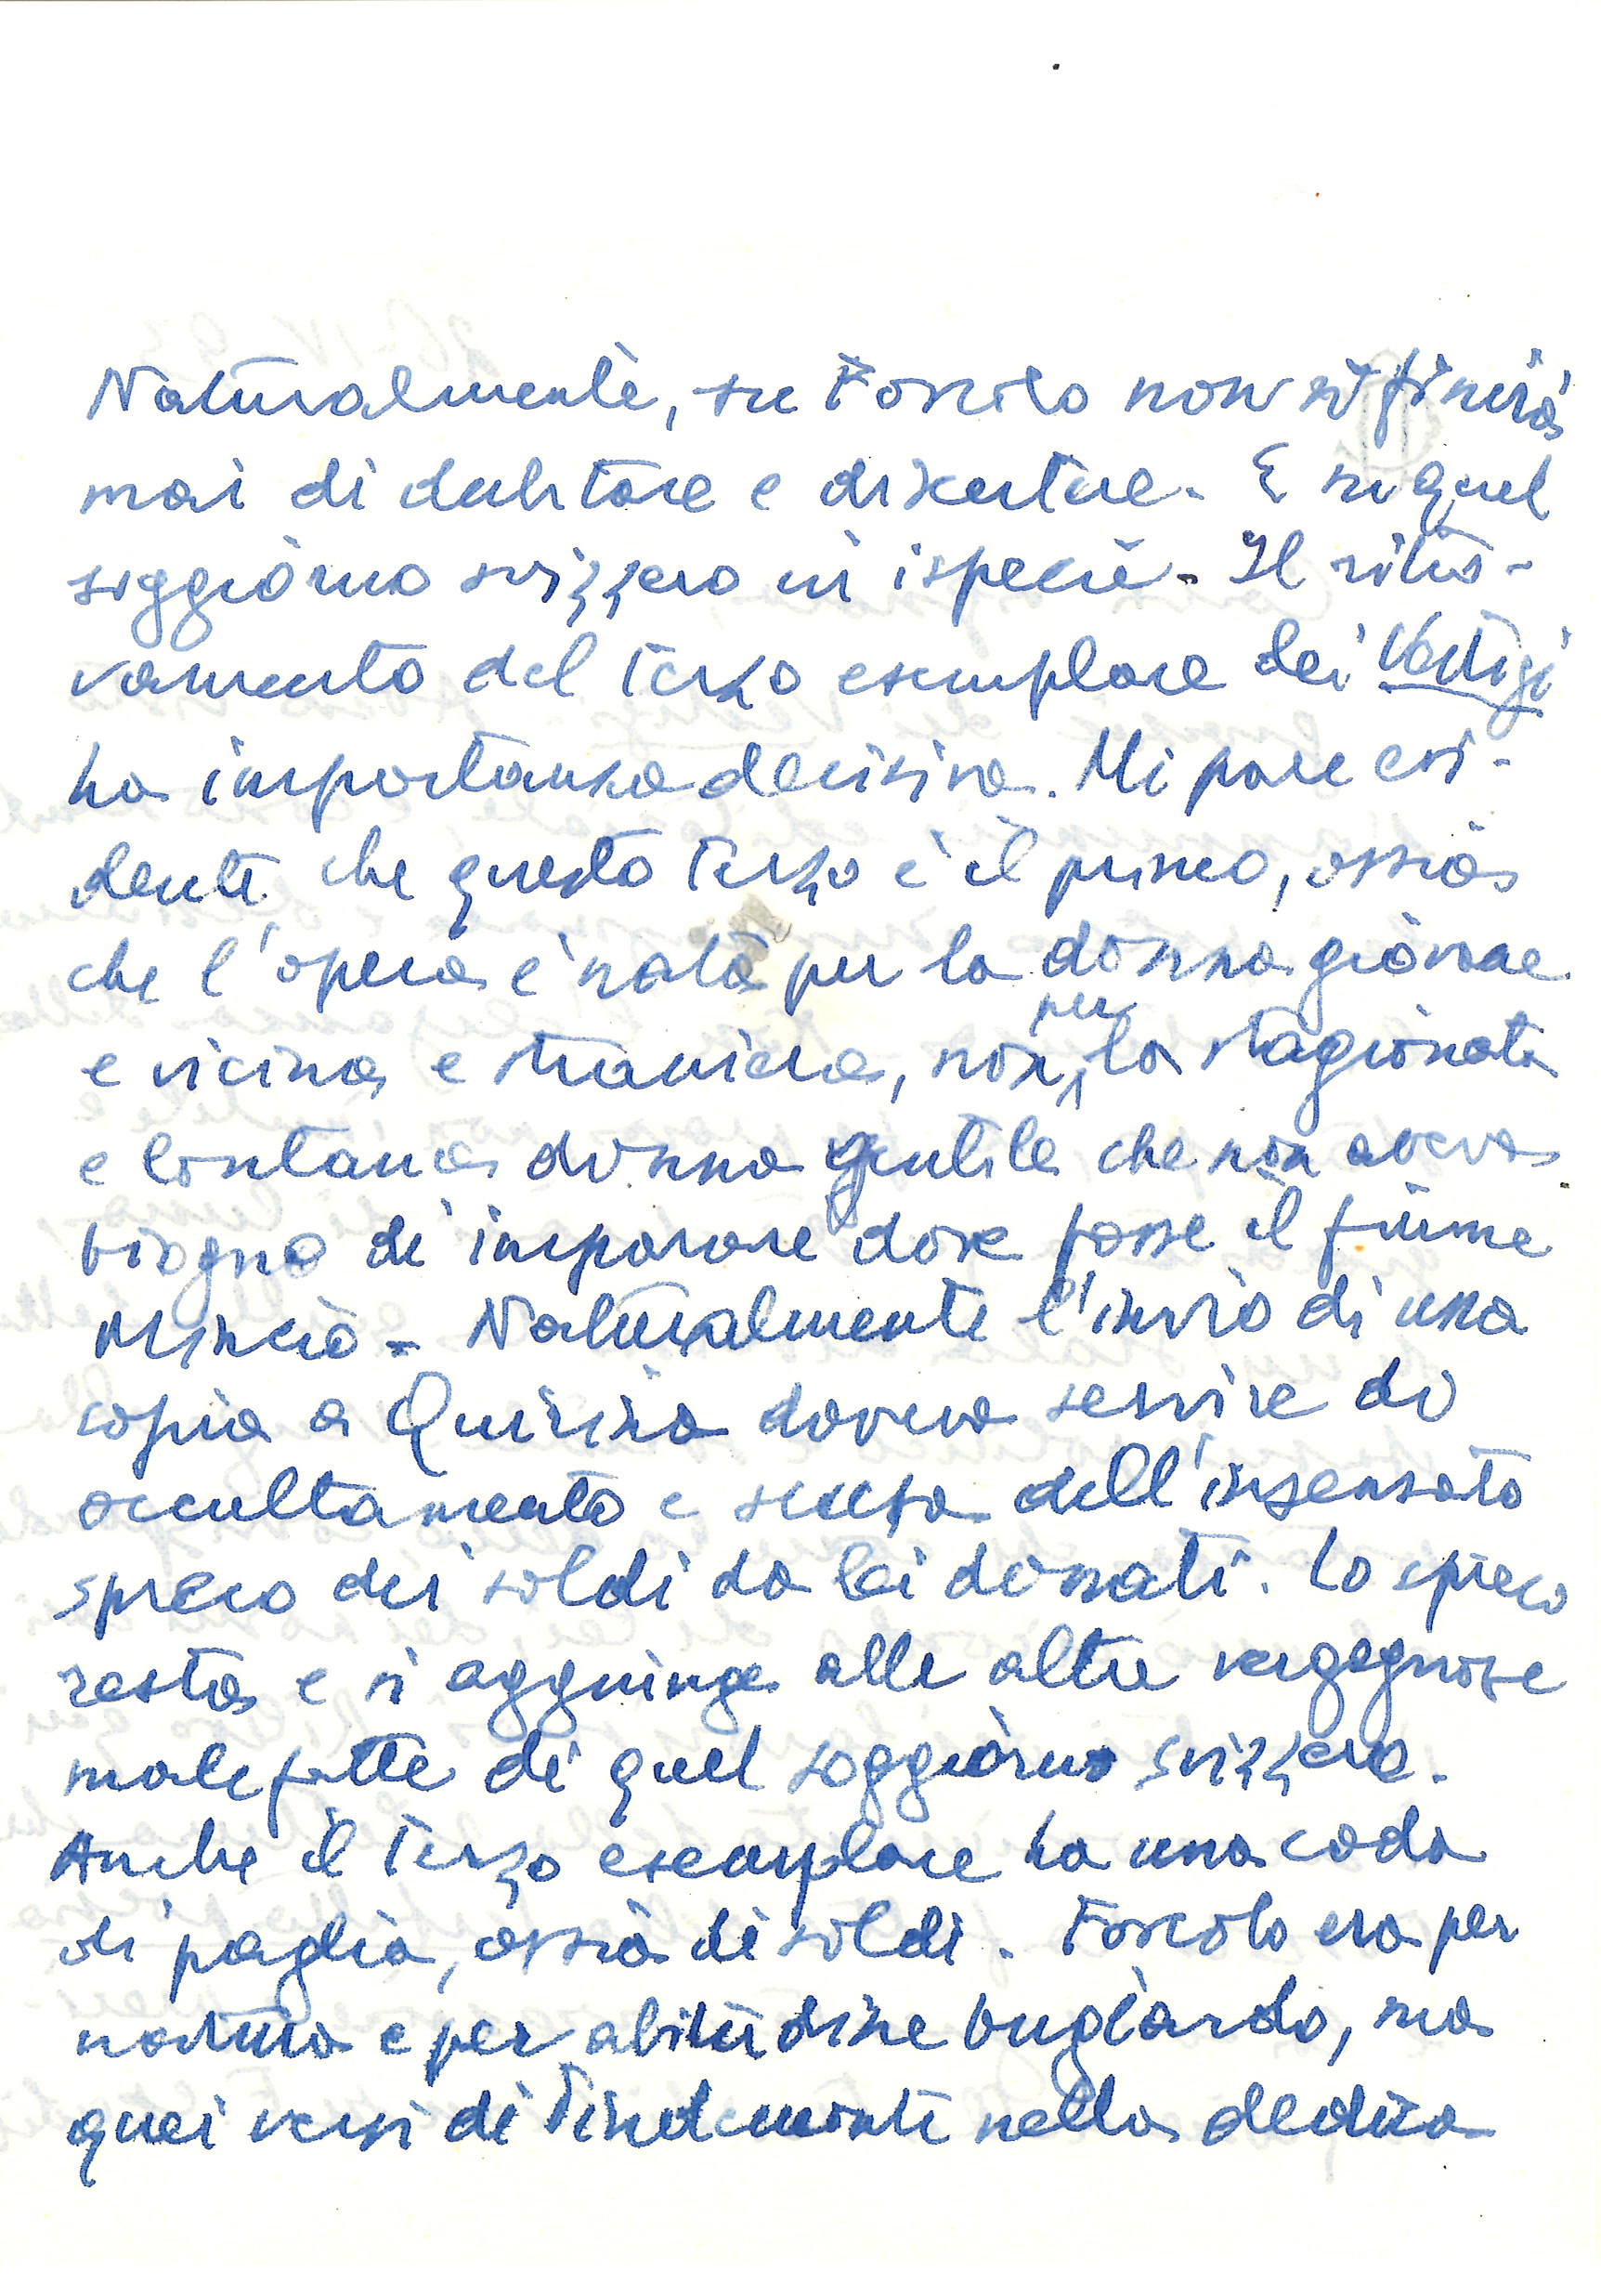 Naturalmente, su Foscolo non si finirà
mai di dubitare e discutere. E su quel
soggiorno svizzero in ispecie. Il ritro-
vamento del terzo esemplare dei Vestigi
ha importanza decisiva. Mi pare evi-
dente che questo terzo è il primo, ossia
che l'opera è nata per la donna giovane
e vicina e straniera, non per la stagionata
e lontana donna gentile che non aveva
bisogno di imparare dove fosse il fiume
Mincio. Naturalmente l'invio di una
copia a Quirina doveva servire di
occultamento e scusa dell'insensato
spreco dei soldi da lei donati. Lo spreco
resta e si aggiunge alle altre vergognose
malefatte di quel soggiorno svizzero.
Anche il terzo esemplare ha una coda
di paglia, ossia di soldi. Foscolo era per
natura e per abitudine bugiardo, ma
quei versi di Pindemonte nella dedica